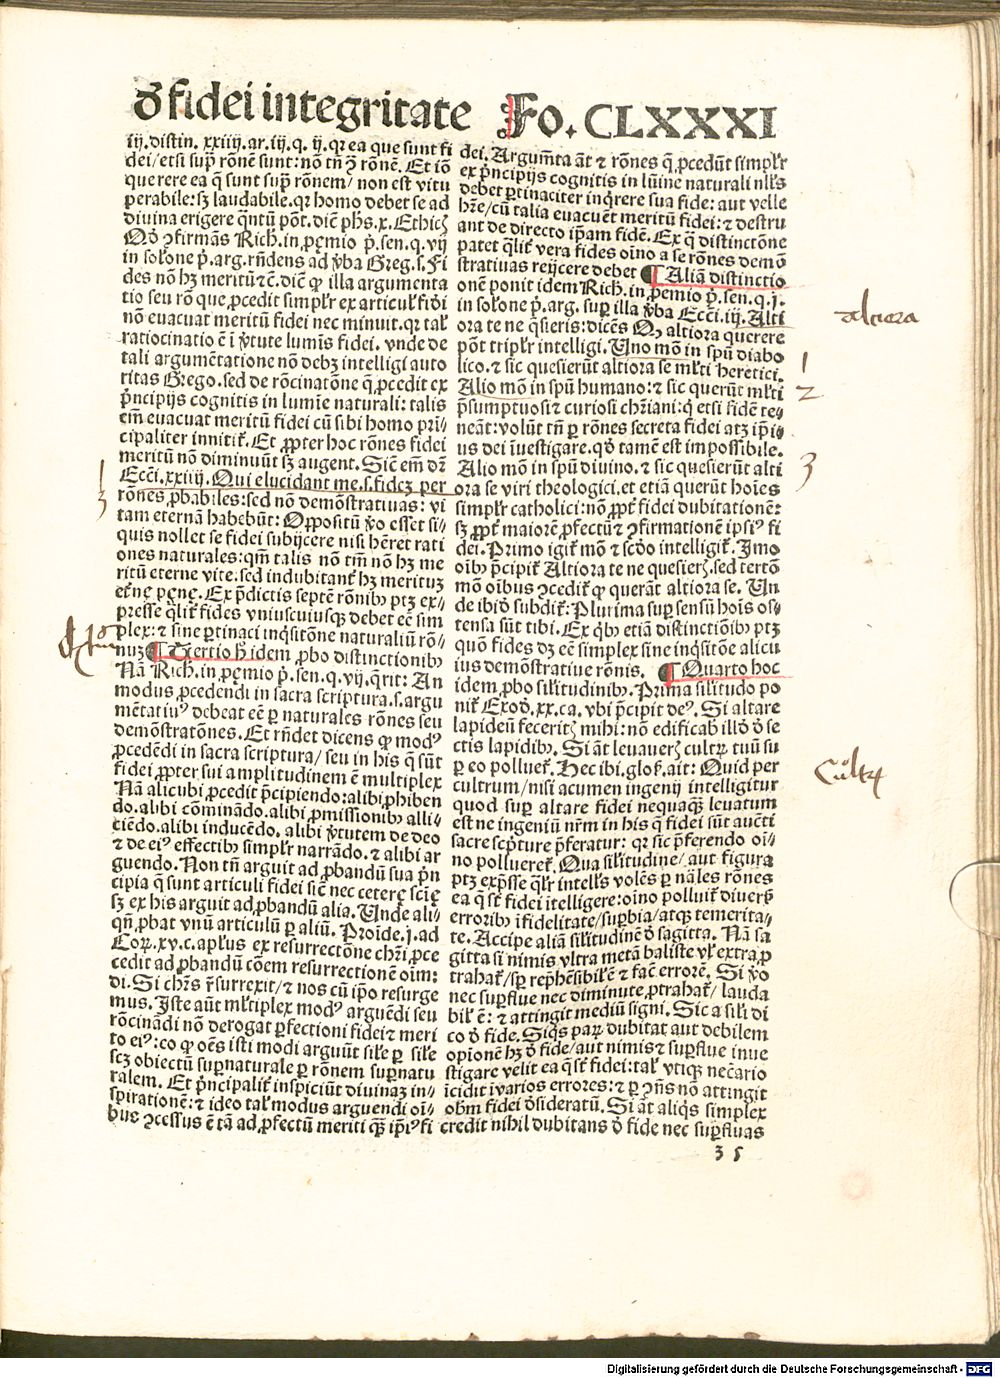 ꝺ fidei integritate Fo. CLXXXXI
iij. distin. xxiiij. ar. iij. q. ij. qꝛ ea que sunt fi
dei/ etsi supꝛ rōnē sunt: nō tn̄ ꝯ rōnē. Et iō
querere ea q̄ sunt supꝛ rōnem/ non est vitu
perabile: sꝫ laudabile. qꝛ homo debet se ad
diuina erigere q̄ntū pōt. dic̄ phs. x. Ethicꝫ
Qđ ꝯfirmās Rich. in ꝓemio pͥ. sen. q. vij
in solōne pͥ. arg. rn̄dens ad v̄ba Greg. s. Fi
des nō hꝫ meritū ⁊c̄. dic̄ ꝙ illa argumenta
tio seu rō que ꝓcedit simplr̄ ex articul̓ fiđi
nō euacuat meritū fidei nec minuit. qꝛ tal̓
ratiocinatio ē ī v̓tute lumīs fidei. vnde de
tali argumētatione nō debꝫ intelligi auto
ritas Grego. sed de rōcinatōne q̄ ꝓcedit ex
pͥncipijs cognitis in lumīe naturali: talis
em̄ euacuat meritū fidei cū sibi homo prī⸗
cipaliter innitit̓. Et ꝓpter hoc rōnes fidei
meritū nō diminuūt sꝫ augent. Sic̄ em̄ dr̄
Ecc̄i. xxiiij. Qui elucidant me. s. fidcꝫ per
rōnes ꝓbabiles: sed nō demōstratiuas: vi
tam eternā habebūt: Oppositū v̓o esset si⸗
quis nollet se fidei subijcere nisi hēret rati
ones naturales: qm̄ talis nō tm̄ nō hꝫ me
ritū eterne vite. sed indubitant̓ hꝫ merituꝫ
et̓ne pęnę. Ex p̄dictis septē rōnibꝰ ptꝫ ex⸗
presse q̄lit̓ fides vniuscuiusqꝫ debet eē sim
plex: ⁊ sine ꝑtinaci inq̄sitōne naturaliū rō⸗
nuꝫ ¶ Tertio h̓ idem ꝓbo distinctionibꝰ
Nā Rich. in ꝓemio pͥ. sen. q. vij. q̄rit: An
modus ꝓcedendi in sacra scriptura. s. argu
mētatiuꝰ debeat eē ꝑ naturales rōnes seu
demōstratōnes. Et rn̄det dicens ꝙ modꝰ
ꝓcedēdi in sacra scriptura/ seu in his q̄ sūt
fidei ꝓpter sui amplitudinem ē multiplex
Nā alicubi ꝓcedit p̄cipiendo: alibi ꝓhiben
do. alibi cōminādo. alibi ꝓmissionibꝰ alli⸗
ciēdo. alibi inducēdo. alibi v̓tutem de deo
⁊ de eiꝰ effectibꝰ simplr̄ narrādo. ⁊ alibi ar
guendo. Non tn̄ arguit ad ꝓbandū sua pͥn
cipia q̄ sunt articuli fidei sic̄ nec cetere sciē
sꝫ ex his arguit ad ꝓbandū alia. Unde ali⸗
qn̄ ꝓbat vnū articulū ꝑ aliū. Proīde. j. ad
Coꝝ. xv. c. apl̓us ex resurrectōne chr̄i ꝓce
cedit ad ꝓbandū cōem resurrectionē oīm:
di. Si chr̄s r̄surrexit/ ⁊ nos cū ip̄o resurge
mus. Iste aūt ml̓tiplex modꝰ arguēdi seu
rōcināđi nō derogat ꝑfectioni fidei ⁊ meri
to eiꝰ: eo ꝙ oēs isti modi arguūt sil̓e ꝑ sil̓e
scꝫ obiectū suꝑnaturale ꝑ rōnem suꝑnatu
ralem. Et pͥncipalit̓ inspiciūt diuinaꝫ in⸗
spirationē: ⁊ ideo tal̓ modus arguendi oī⸗
bus ꝯcessus ē tā ad ꝓfectū meriti qꝫ ip̄iꝰ fi
dei. Argum̄ta āt ⁊ rōnes q̄ ꝓcedūt simplr̄
ex pͥncipijs cognitis in lūine naturali nll̓s
debet ꝑtinaciter inq̄rere sua fide: aut velle
hr̄e/ cū talia euacuēt meritū fidei: ⁊ destru
ant de directo ip̄am fidē. Ex q̄ distinctōne
patet q̄lit̓ vera fides oīno a se rōnes demō
stratiuas reijcere debet ¶ Aliā distinctio
onē ponit idem Rich. in ꝓemio pͥ. sen. q. j.
in solone pͥ. arg. suꝑ illa v̓ba Ecc̄i. iij. Alti
ora te ne q̄sieris: dicēs Qꝙ altiora querere
pōt triplr̄ intelligi. Uno mō in spū diabo
lico. ⁊ sic quesierūt altiora se ml̓ti heretici.
Alio mō in spū humano: ⁊ sic querūt ml̓ti
p̄sumptuosi ⁊ curiosi chr̄iani: q̄ etsi fidē te⸗
neāt: volūt tn̄ ꝑ rōnes secreta fidei atqꝫ ip̄iꝰ⸗
us dei īuestigare. qđ tamē est impossibile.
Alio mō in spū diuino. ⁊ sic quesierūt alti
ora se viri theologici. et etiā querūt hoīes
simplr̄ catholici: nō ꝓpt̓ fidei dubitationē:
sꝫ ꝓpt̓ maiorē ꝓfectū ⁊ ꝯfirmationē ipsiꝰ fi
dei. Primo igit̓ mō ⁊ scđo intelligit̓. Imo
oibꝰ p̄cipit̓ Altiora te ne quesierꝭ. sed tertō
mō oībus ꝯcedit̓ ꝙ querāt altiora se. Un
de ibiđ subdit̓: Plurima suꝑ sensū hoīs os⸗
tensa sūt tibi. Ex q̄bꝰ etiā distinctiōibꝰ ptꝫ
quō fides dꝫ eē simplex sine inq̄sitōe alicu
ius demōstratiue rōnis. ¶ Quarto hoc
idem ꝓbo sil̓itudinibꝰ. Prima sil̓itudo po
nit̓ Exođ. xx. ca. vbi p̄cipit deꝰ. Si altare
lapideū fecerꝭ mihi: nō edificabꝭ illđ đ se
ctis lapidibꝰ. Si āt leuauerꝭ cultꝝ tuū su
ꝑ eo polluet̓. Hec ibi. glos̓. ait: Quid per
cultrum/ nisi acumen ingenij intelligitur
quod suꝑ altare fidei nequaqꝫ leuatum
est ne ingeniū nr̄m in his q̄ fidei sūt aucti
sacre scͥpture p̄feratur: qꝛ sic p̄ferendo oī⸗
no polluet̓. Qua sil̓itudine/ aut figura
ptꝫ exp̄sse q̄lr̄ intell̓s volēs ꝑ nāles rōnes
ea q̄ st̓ fidei ītelligere: oīno polluit̓ diuersꝭ
erroribꝰ īfidelitate/ suꝑbia/ atqꝫ temerita⸗
te. Accipe aliā sil̓itudinē đ sagitta. Nā sa
gitta si nimis vltra metā baliste vl̓ extra ꝓ
trahat̓/ sp̄ rep̄hēsibil̓ē ⁊ fac̄ errorē. Si v̓o
nec suꝑflue nec diminute ꝓtrahat̓/ lauda
bil̓ ē: ⁊ attingit mediū signi. Sic a sil̓i di
co đ fide. Siq̄s paꝝ dubitat aut debilem
opīonē hꝫ đ fide/ aut nimis ⁊ suꝑflue inue
stigare velit ea q̄ st̓ fidei: tal̓ vtiqꝫ nec̄ario
īcidit īvarios errores: ⁊ ꝑ ꝯn̄s nō attingit
obm̄ fidei đsideratū. Si āt aliq̄s simplex
credit nihil dubitans đ fide nec suꝑfluas
z 5
altiora
1
2
3
1
3
Cultꝝ
Digitalisierung gefördert durch die Deutsche Forschungsgemeinschaft - DFG